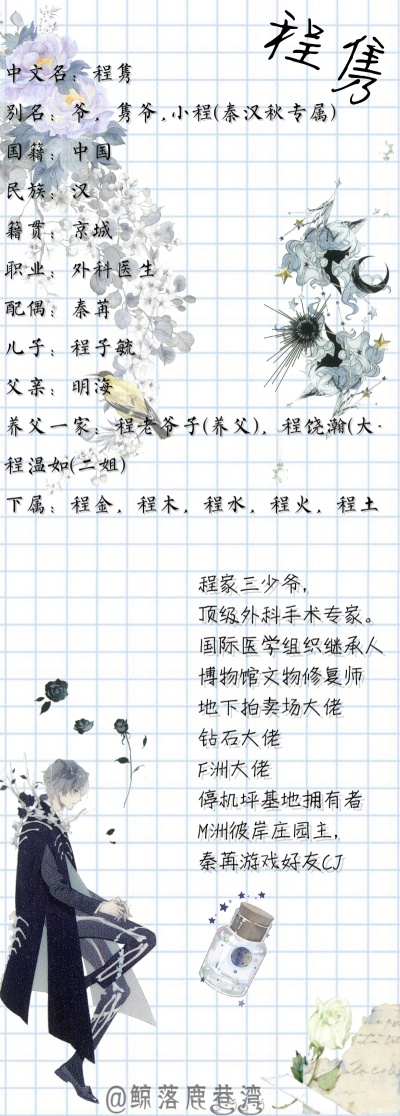 程隽
中文名：程隽
别名：爷，隽爷,小程(秦汉秋专属)
国籍：中国
民族：汉
籍贯：京城
职业：外科医生
配偶：秦苒
儿子：程子毓
父亲：明海
养父一家：程老爷子(养父)，程饶瀚(大·
程温如(二姐)
下属：程金，程木，程水，程火，程土
程家三少爷，
顶级外科手术专家。
国际医学组织继承人
博物馆文物修复师
地下拍卖场大佬
钻石大佬
F洲大佬
停机坪基地拥有者
M洲彼岸庄园主，
秦苒游戏好友CJ
@鲸落鹿巷湾